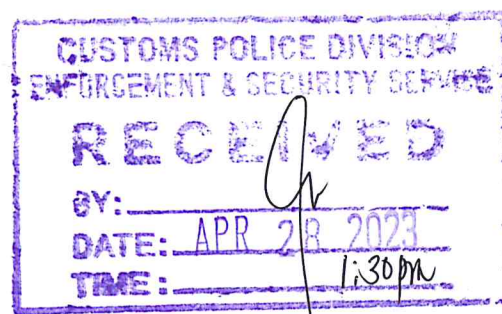 CUSTOMS POLICE DIVISION
ENFORCEMENT & SECURITY SERVICE
RECEIVED
BY:
DATE: APR 28 2023
TIME: 1:30pm